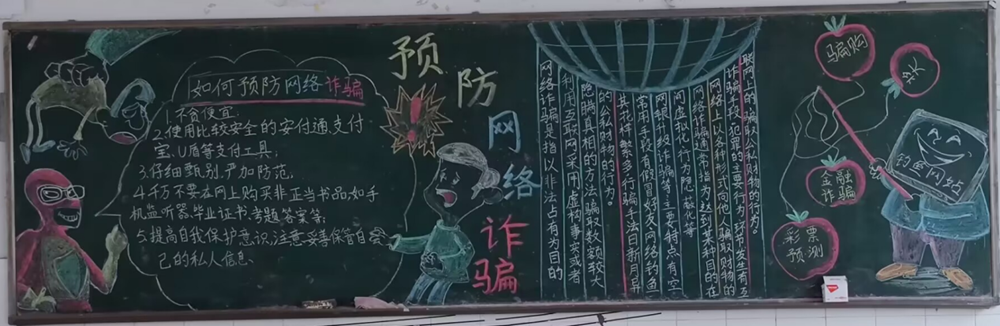 如何预防网络诈骗
1.不贪便宜
2.使用比较安全的安付通、支付
宝、U盾等支付工具;
3.仔细甄别,严加防范,
4.千万不要在网上购买非正当书品,如手
机监听器、毕业证书、考题答案等;
5.提高自我保护意识,注意妥善保管自
己的私人信息、
预防网络诈骗
网络诈骗是指以非法占有为目的
利用互联网采用虚构事实或者
隐瞒真相的方法骗取数额较大
的公私财物的行为。
其花样繁多行骗手法日新月异
常用手段有假冒好友、网络钓鱼
网银升级诈骗等,主要特点有空
间虚拟化行为隐蔽化等
网络诈骗通常指为达到某种目的在
网络上以各种形式向他人骗取财物的
诈骗手段、犯罪的主要行为、环节发生有互
联网上的骗取公私财物的行为。
骗购
金融
诈骗
彩票
预测
钓鱼网站